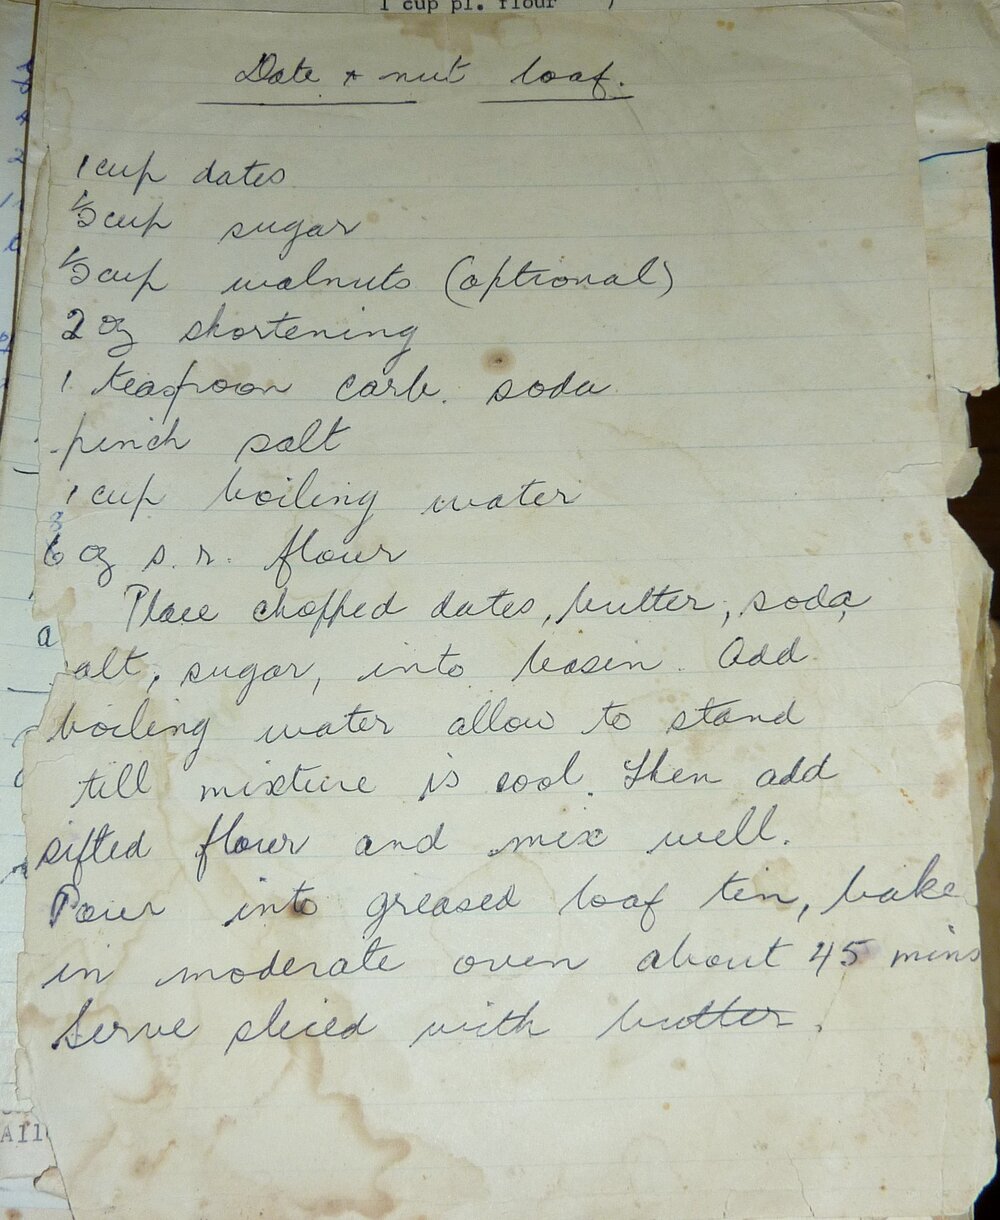 1 cup pl. flour )
Date + nut loaf.
1 cup dates
⅓ cup sugar
⅓ cup walnuts (optional)
2 oz shortening
1 teaspoon carb. soda
pinch salt
1 cup boiling water
6 oz s. r. flour
Place chopped dates, butter, soda,
alt, sugar, into basin. Add
boiling water allow to stand
till mixture is cool. Then add
sifted flour and mix well.
Pour into greased loaf tin, bake
in moderate oven about 45 mins
Serve sliced with butter.
All